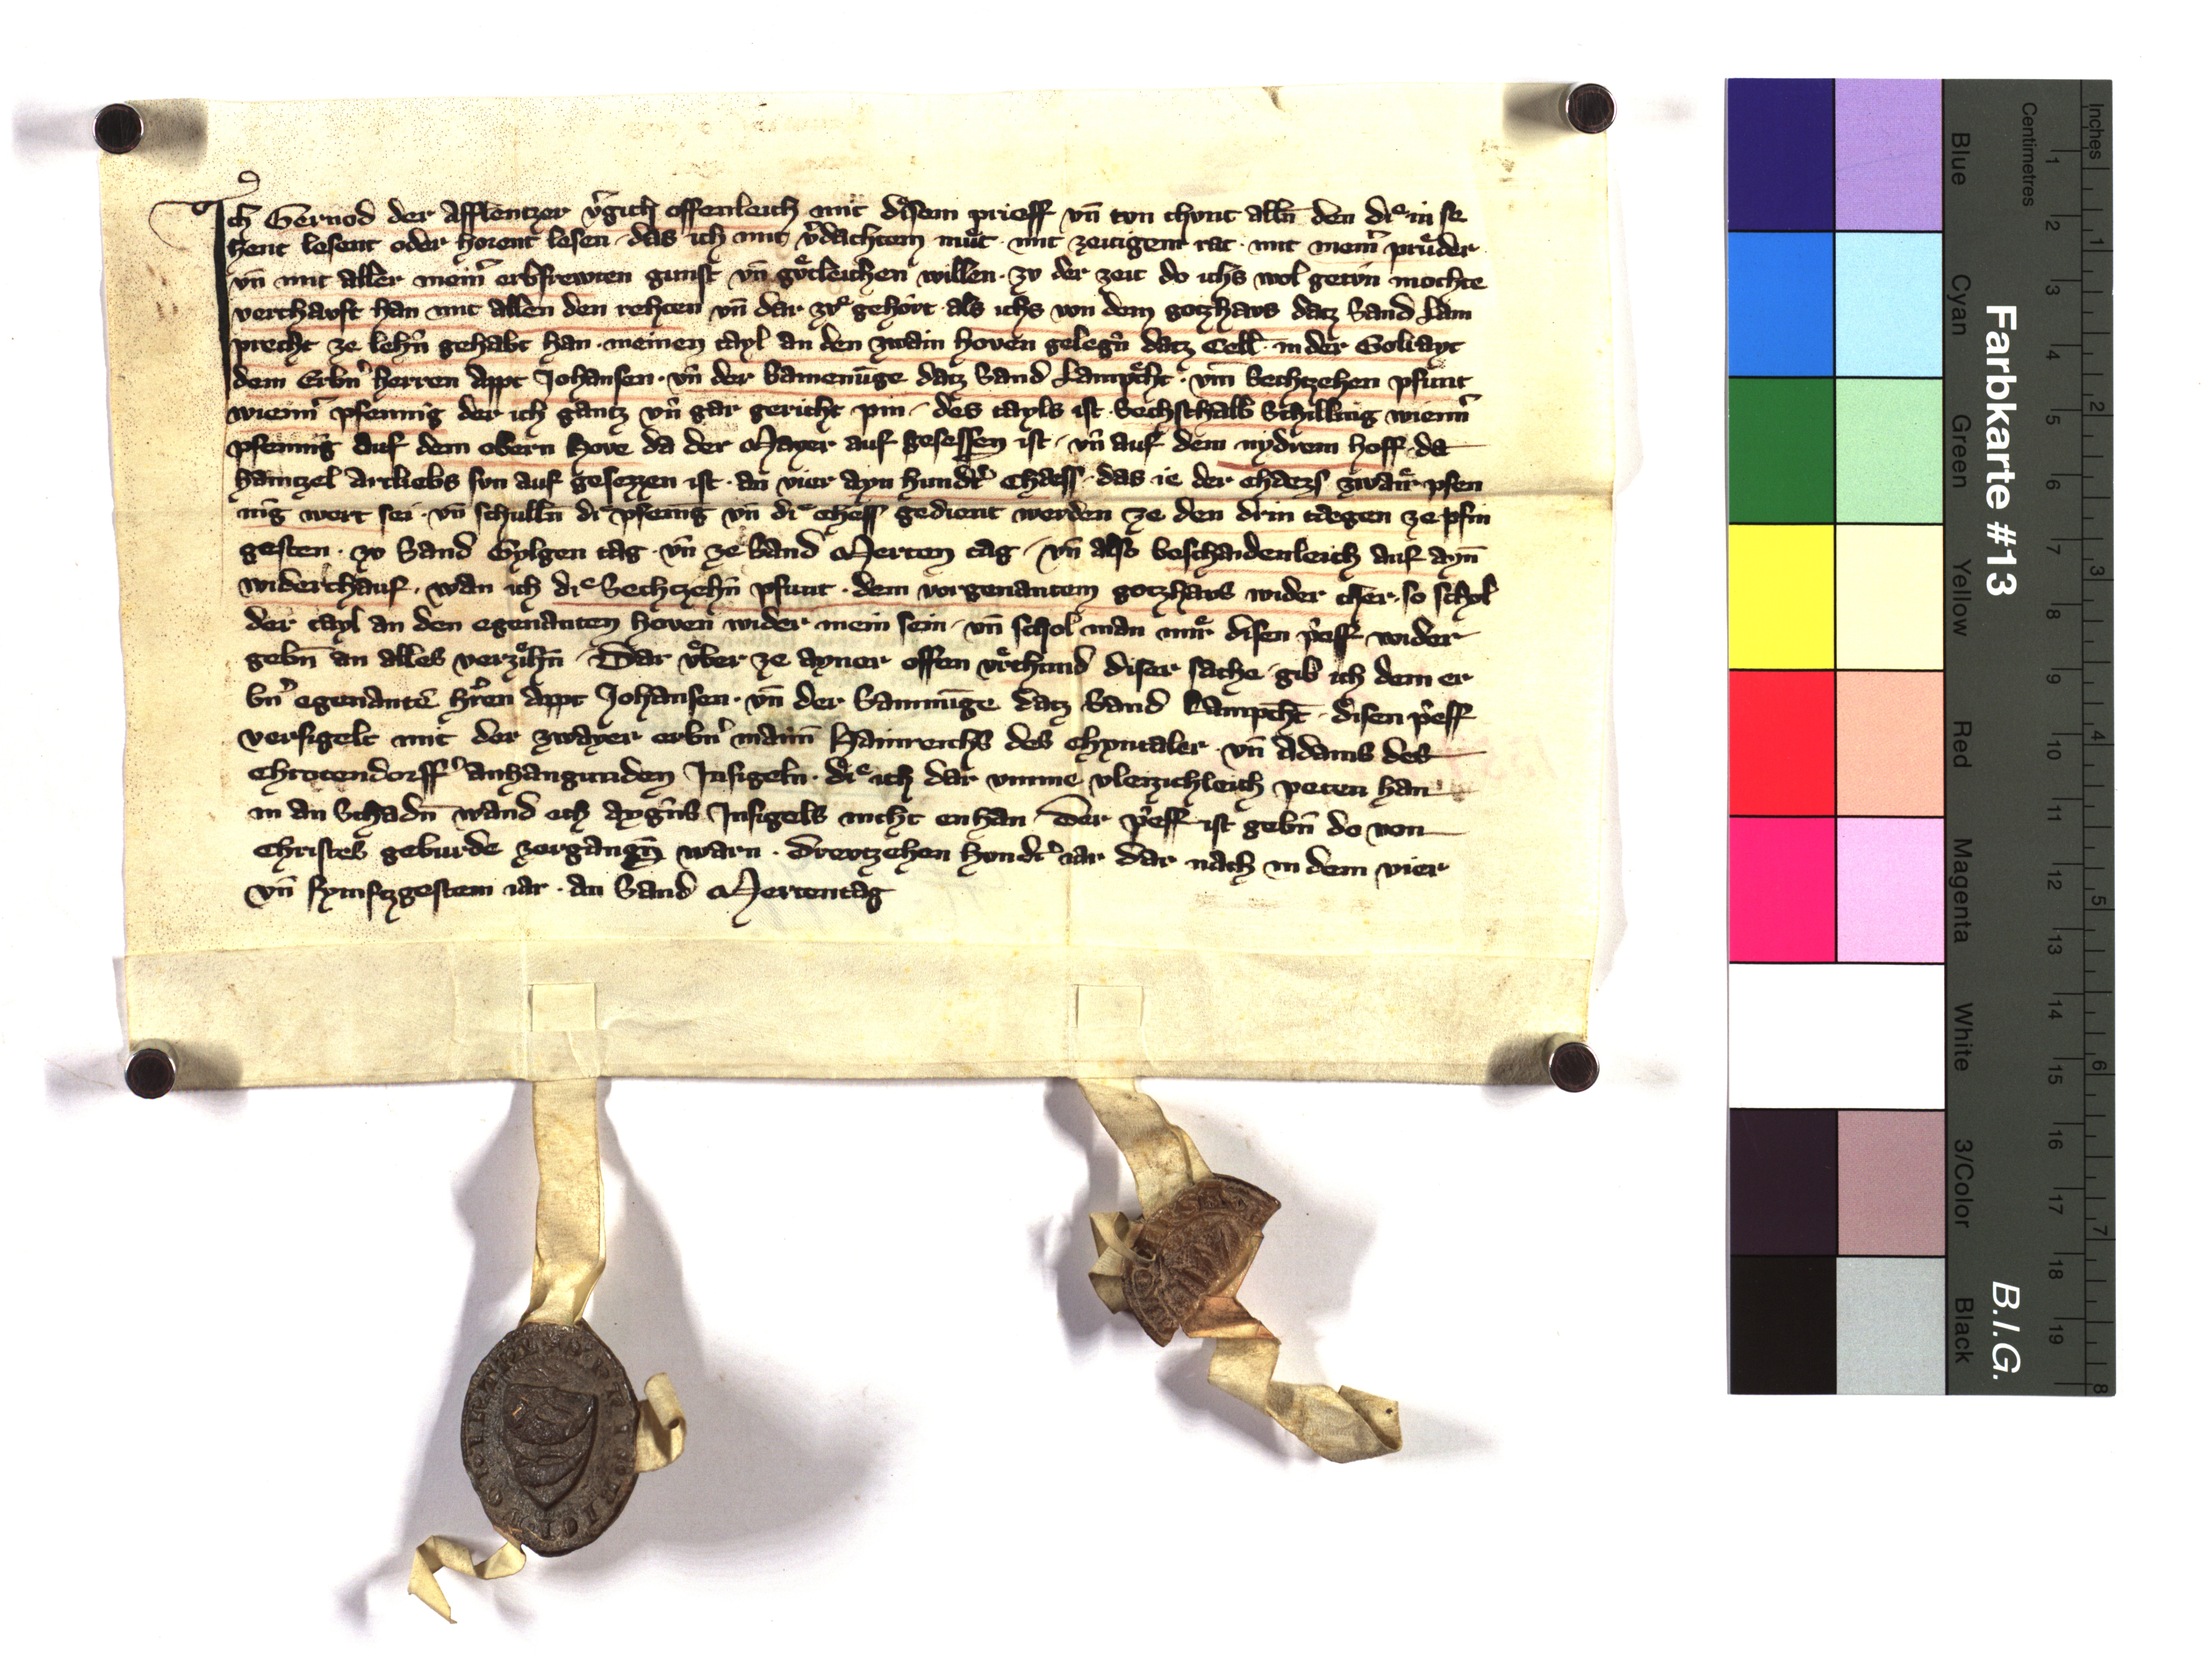 Ich Gernod der Afflentzer v͛gich offenleich mit disem prieff vn̄ tvn chvnt alln̄ den die in se
hent lesent oder horent lesen das ich mit v͛dachtem muͤt mit zeitigem rat mit mein͛ pruͤder
vn̄ mit aller mein͛ erbfrewten gunst vn̄ guͤtleichen willen zv der zeit do ichs wol getvn mochte
verchavft han mit allen den rehten vn̄ dar zv gehort als ichs von dem gotzhavs datz Sand Lam
precht ze lehn̄ gehabt han meinen tayl an den zwain hoven gelegn̄ datz Cell in der Golrayt
dem Erbn͛ herren Appt Johansen vn̄ der Samenūge datz Sand Lamp͛cht vm̄ Sechtzehen pfunt
wienn͛ pfennig der ich gantz vn̄ gar gericht pin des tayls ist Sechsthalb Schilling wienn͛
pfennig auf dem obern hove da der Mayer auf gesessen ist vn̄ auf dem nydrem hoff da
haintzel Artliebs svn auf gesezzen ist an vier ayn hundt͛ Chaess das ie der chaezs zwair pfen
nig wert sei vn̄ schulln̄ die pfenīg vn̄ die chess gedient werden ze den drin taegen ze pfin
gesten zv Sand Gylgen tag vn̄ ze Sand Merten tag vn̄ also beschaidenleich auf ayn̄
widerchauf wan ich die Sechtzehn̄ pfunt dem vorgenantem gotzhavs wider cher so schol
der tayl an den egenanten hoven wider mein sein vn̄ schol man mir disen p͛eff wider
gebn̄ an alles verzihn̄ Dar vͤber ze ayner offen vrchund diser sache gib ich dem er
bn͛ egenantē hr͛en Appt Johansen vn̄ der Samnūge datz Sand Lamp͛cht disen p͛eff
versigelt mit der zwayer erbn͛ mann̄ Hainreichs des Chyntaler vn̄ Adams des
Chrotendorff͛ anhangunden Insigeln die ich dar vmme vleizichleich peten han
in an Schadn̄ wand ich aygn̄s Insigels nicht enhan Der p͛eff ist gebn̄ do von
Christes geburde zergangn̄ warn Drevtzehen hvndt͛ iar dar nach in dem vier
vn̄ fymftzgestem iar an Sand Mertentag
Farbkarte #13
B.I.G.
Inches
Centimetres
Blue
Cyan
Green
Yellow
Red
Magenta
White
3/Color
Black
1 2 3 4 5 6 7 8 9 10 11 12 13 14 15 16 17 18 19
1 2 3 4 5 6 7 8